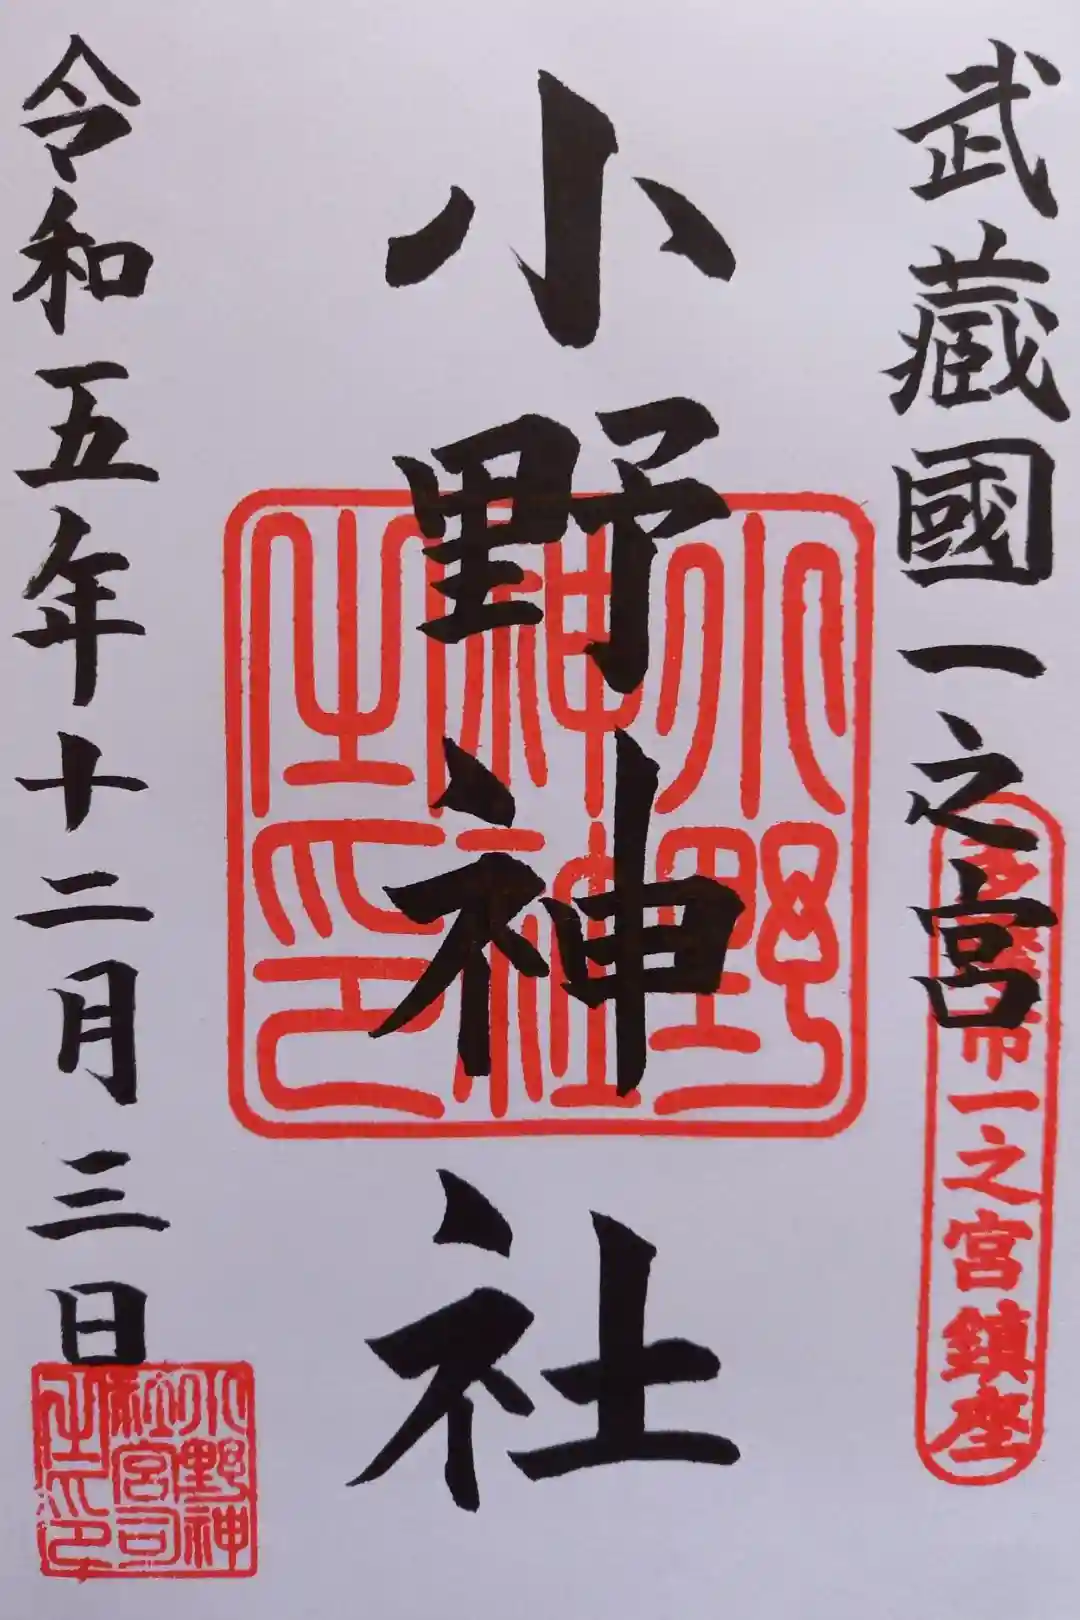 武藏國一之宮
市一之宮鎮座
小野神社
小野神社之印
令和五年十二月三日
小野神社宮司之印